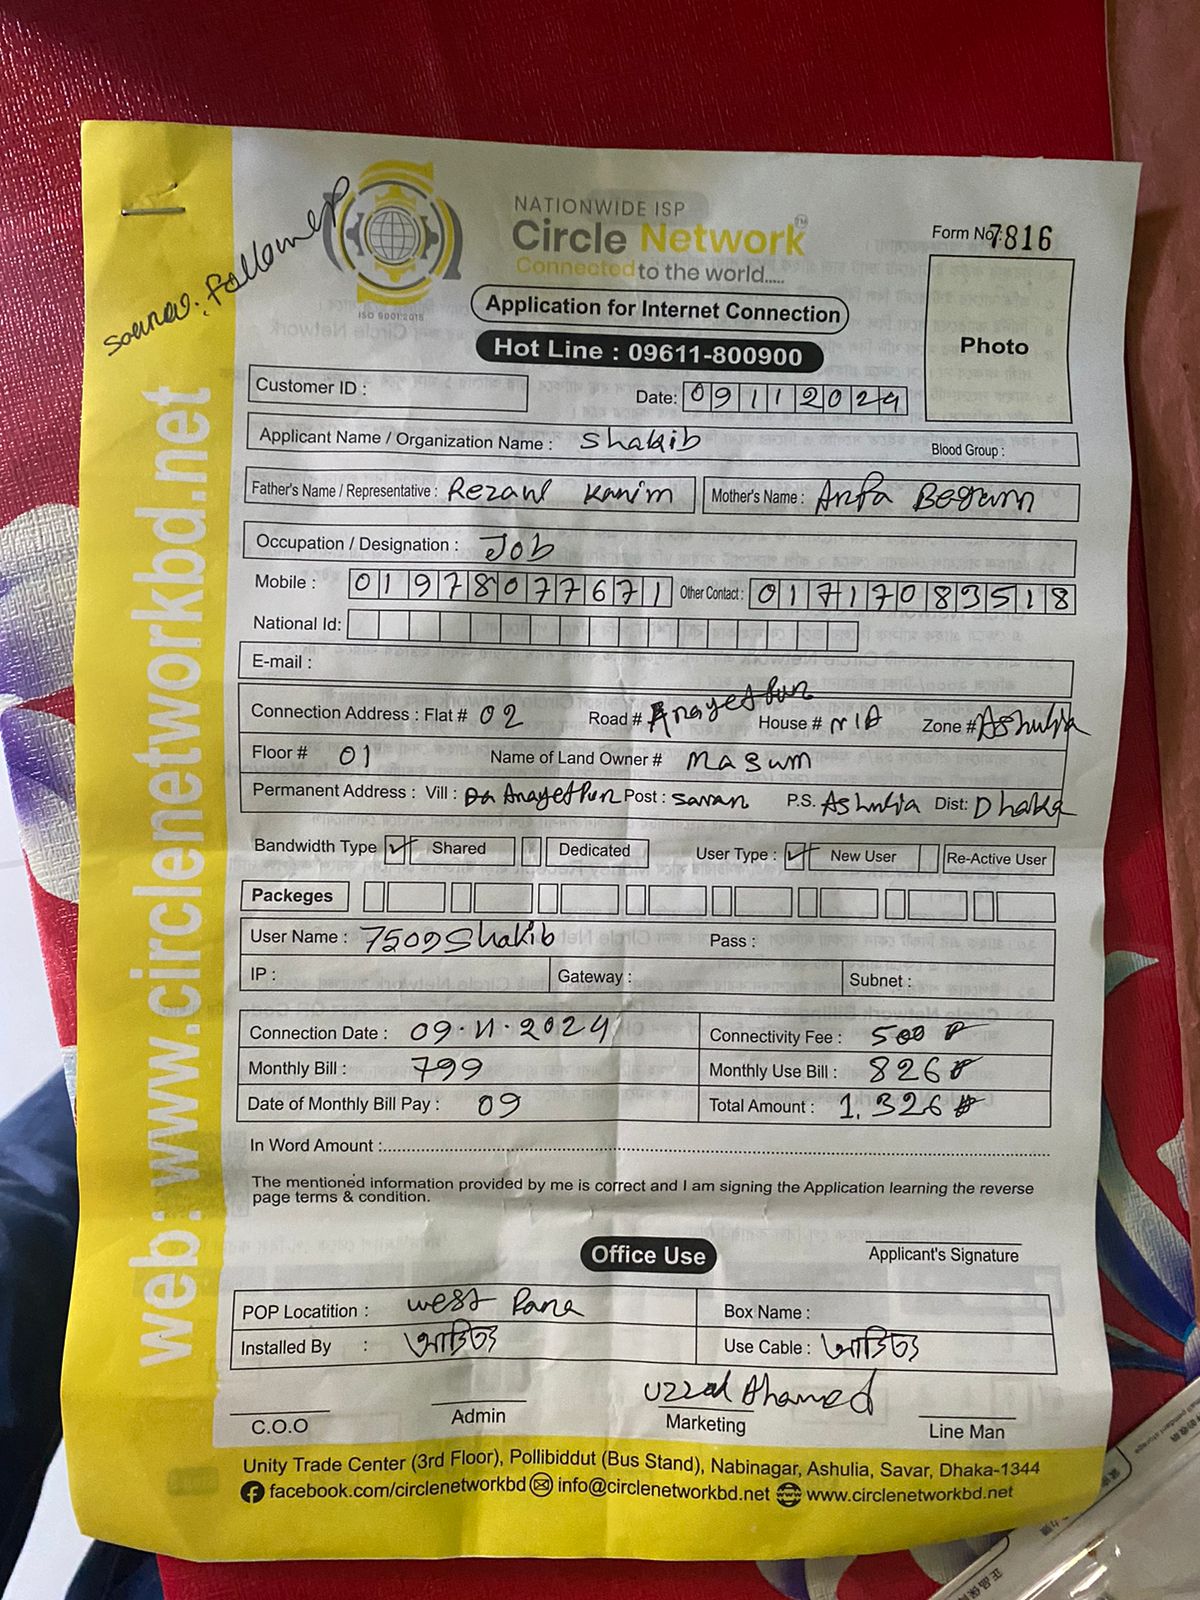 NATIONWIDE ISP
Circle Network™
Connected to the world.....
ISO 9001:2015
Form No: 7816
Application for Internet Connection
Hot Line : 09611-800900
Photo
Customer ID :
Date: 09112024
Applicant Name / Organization Name : Shakib
Blood Group :
Father's Name / Representative : Rezaul Karim Mother's Name : Begum
Occupation / Designation : Job
Mobile : 01978077671 Other Contact : 01717083518
National Id:
E-mail :
Connection Address : Flat # 02 Road # Anayetpur House # N/A Zone # Ashulia
Floor # 01 Name of Land Owner # Masum
Permanent Address : Vill : Anayetpur Post : Savar P.S. Ashulia Dist: Dhaka
Bandwidth Type ✓ Shared Dedicated User Type : ✓ New User Re-Active User
Packeges
User Name : 7509Shakib Pass :
IP : Gateway : Subnet :
Connection Date : 09.11.2024 Connectivity Fee : 500
Monthly Bill : 799 Monthly Use Bill : 826
Date of Monthly Bill Pay : 09 Total Amount : 1,326
In Word Amount :
The mentioned information provided by me is correct and I am signing the Application learning the reverse
page terms & condition.
Applicant's Signature
Office Use
POP Locatition : West Para Box Name :
Installed By : Use Cable :
Uzzal Ahamed
C.O.O Admin Marketing Line Man
Unity Trade Center (3rd Floor), Pollibiddut (Bus Stand), Nabinagar, Ashulia, Savar, Dhaka-1344
facebook.com/circlenetworkbd info@circlenetworkbd.net www.circlenetworkbd.net
web: www.circlenetworkbd.net